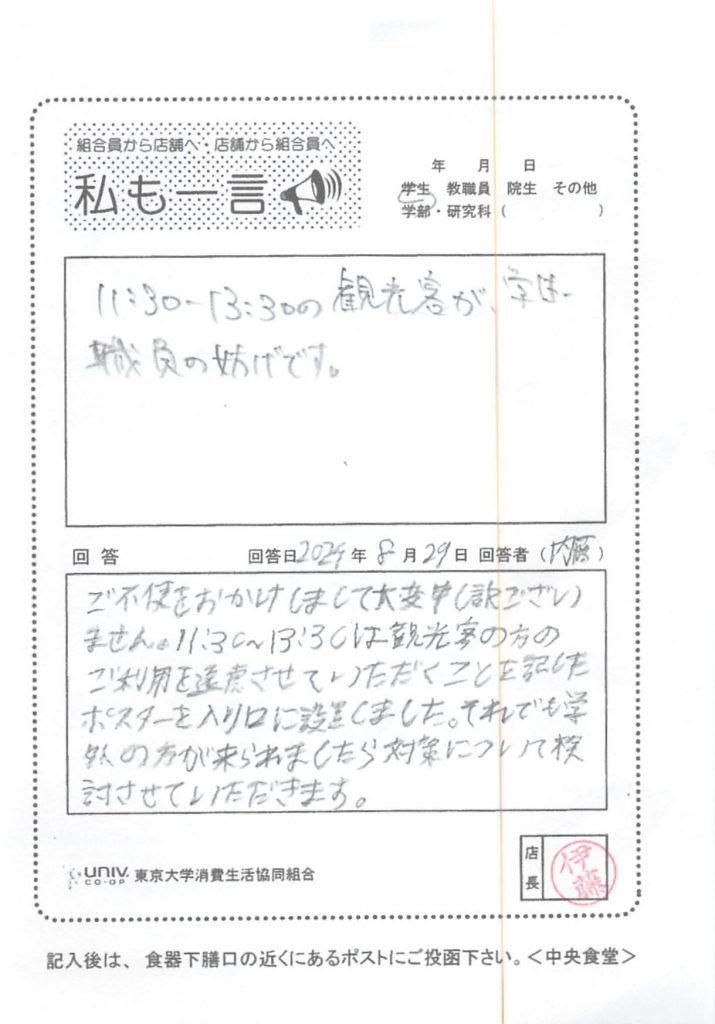 組合員から店舗へ・店舗から組合員へ
私も一言
年 月 日
学生 教職員 院生 その他
学部・研究科( )
11:30-13:30の観光客が、学生、
職員の妨げです。
回答 回答日2024年8月29日 回答者(内藤)
ご不便をおかけしまして大変申し訳ござい
ません。11:30~13:30は観光客の方の
ご利用を遠慮させていただくことを記した
ポスターを入り口に設置しました。それでも学
外の方が来られましたら対策について検
討させていただきます。
UNIV. CO-OP 東京大学消費生活協同組合
店長
伊藤
記入後は、食器下膳口の近くにあるポストにご投函下さい。<中央食堂>